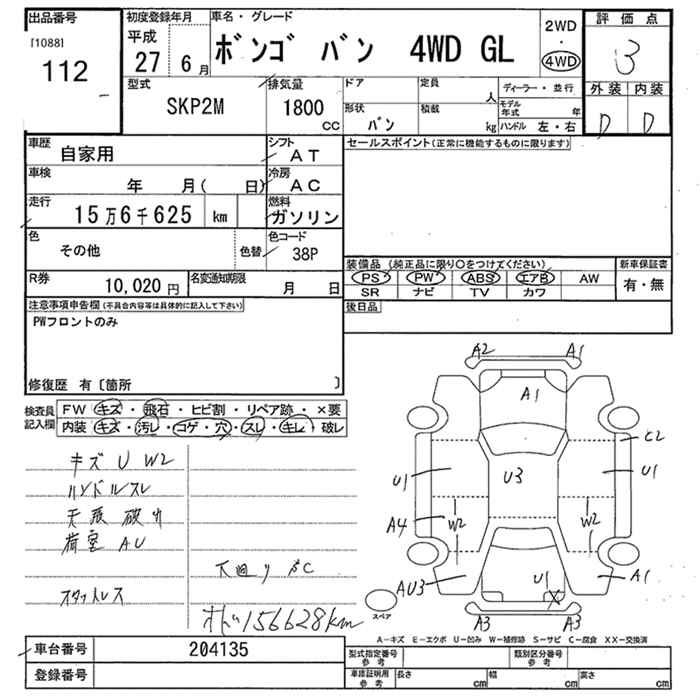 出品番号
[1088]
112
初度登録年月
平成
27 6月
車名・グレード
ボンゴ バン 4WD GL
2WD
・
4WD
評価点
3
外装 内装
D D
型式
SKP2M
排気量
1800
CC
ドア
定員
人
形状
バン
積載
kg
ディーラー・並行
モデル年式 年
ハンドル 左・右
車歴
自家用
シフト
AT
車検
年 月( 日)
冷房
AC
走行
15万6千625 km
燃料
ガソリン
色
その他
色替
色コード
38P
R券
10,020 円
名変通知期限
月 日
セールスポイント(正常に機能するものに限ります)
装備品 (純正品に限り○をつけてください)
PS PW ABS エアB AW
SR ナビ TV カワ
新車保証書
有・無
後日品
注意事項申告欄(不具合内容等は具体的に記入して下さい)
PWフロントのみ
修復歴 有〔箇所 〕
検査員
記入欄
FW キズ・飛石・ヒビ割・リペア跡・×要
内装 キズ・汚レ・コゲ・穴・スレ・キレ・破レ
キズ U W2
ハンドルスレ
天張 破れ
荷室 AU
下廻り SC
スタットレス
オド 156628km
A2 A1
A1
U1 U3 U1
A4 W2 W2
AU3 U1 X A1
A3 A3
スペア
A-キズ E-エクボ U-凹み W-補修跡 S-サビ C-腐食 XX-交換済
車台番号
204135
登録番号
型式指定番号
参考
類別区分番号
参考
車庫証明用
参考
長さ cm
幅 cm
高さ cm